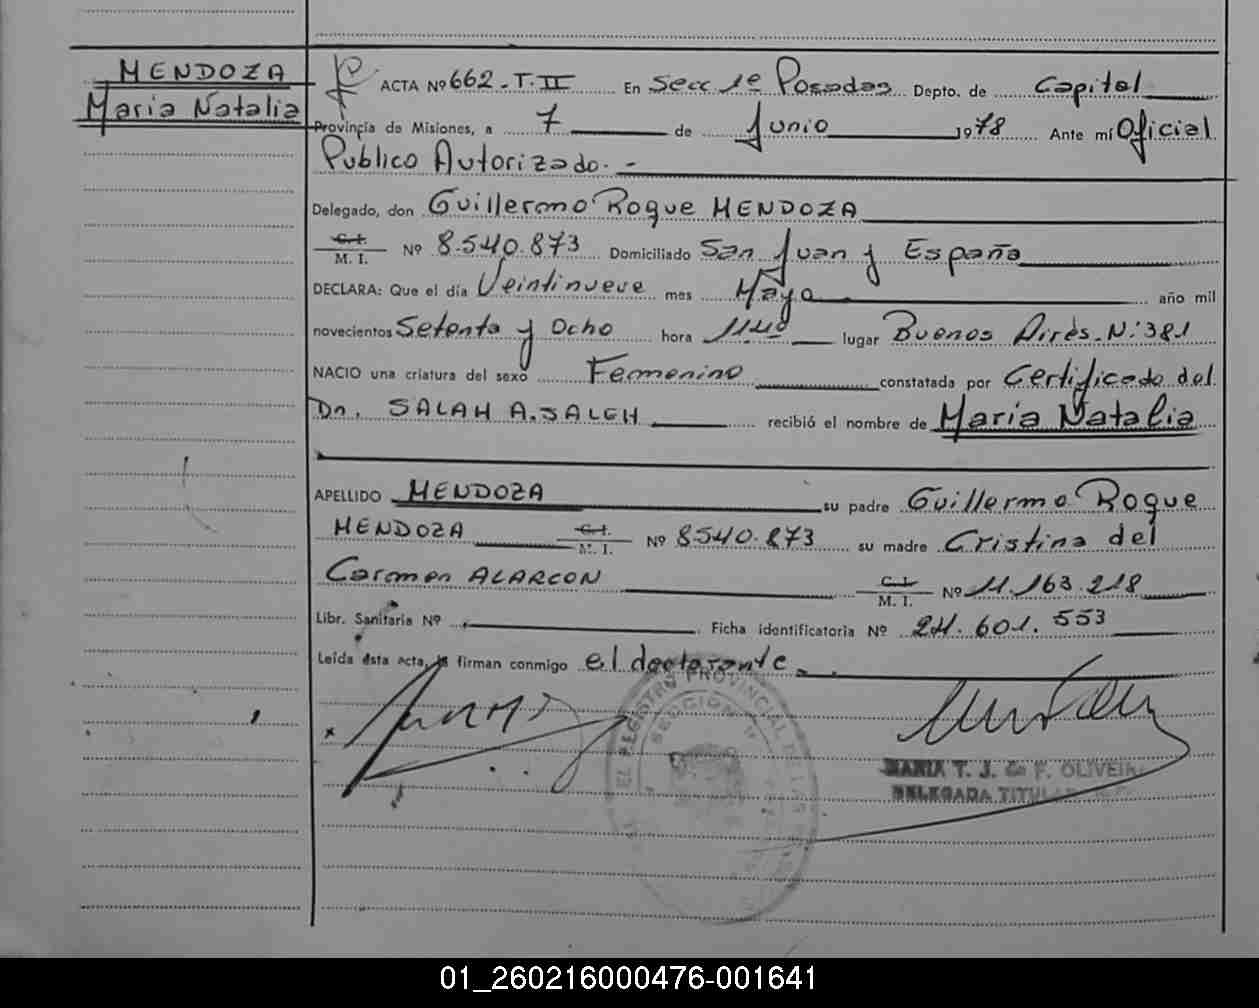 MENDOZA
Maria Natalia
ACTA Nº 662 - T. II En Secc 1º Posadas Depto. de Capital
Provincia de Misiones, a 7 de Junio 1978 Ante mí Oficial
Publico Autorizado. -
Delegado, don Guillermo Roque MENDOZA
C. I.
M. I. Nº 8.540.873 Domiciliado San Juan y España
DECLARA: Que el día Veintinueve mes Mayo año mil
novecientos Setenta y Ocho hora 1140 lugar Buenos Aires. Nº 381
NACIO una criatura del sexo Femenino constatada por Certificado del
Dr. SALAH A. SALEH recibió el nombre de Maria Natalia
APELLIDO MENDOZA su padre Guillermo Roque
MENDOZA C. I.
M. I. Nº 8.540.873 su madre Cristina del
Carmen ALARCON C. I.
M. I. Nº 11.163.218
Libr. Sanitaria Nº Ficha identificatoria Nº 24.601.553
Leída ésta acta, la firman conmigo el declarante
REGISTRO PROVINCIAL DE LAS
SECCION 1ª
MARIA T. J. de F. OLIVEIRA
DELEGADA TITULAR
01_260216000476-001641